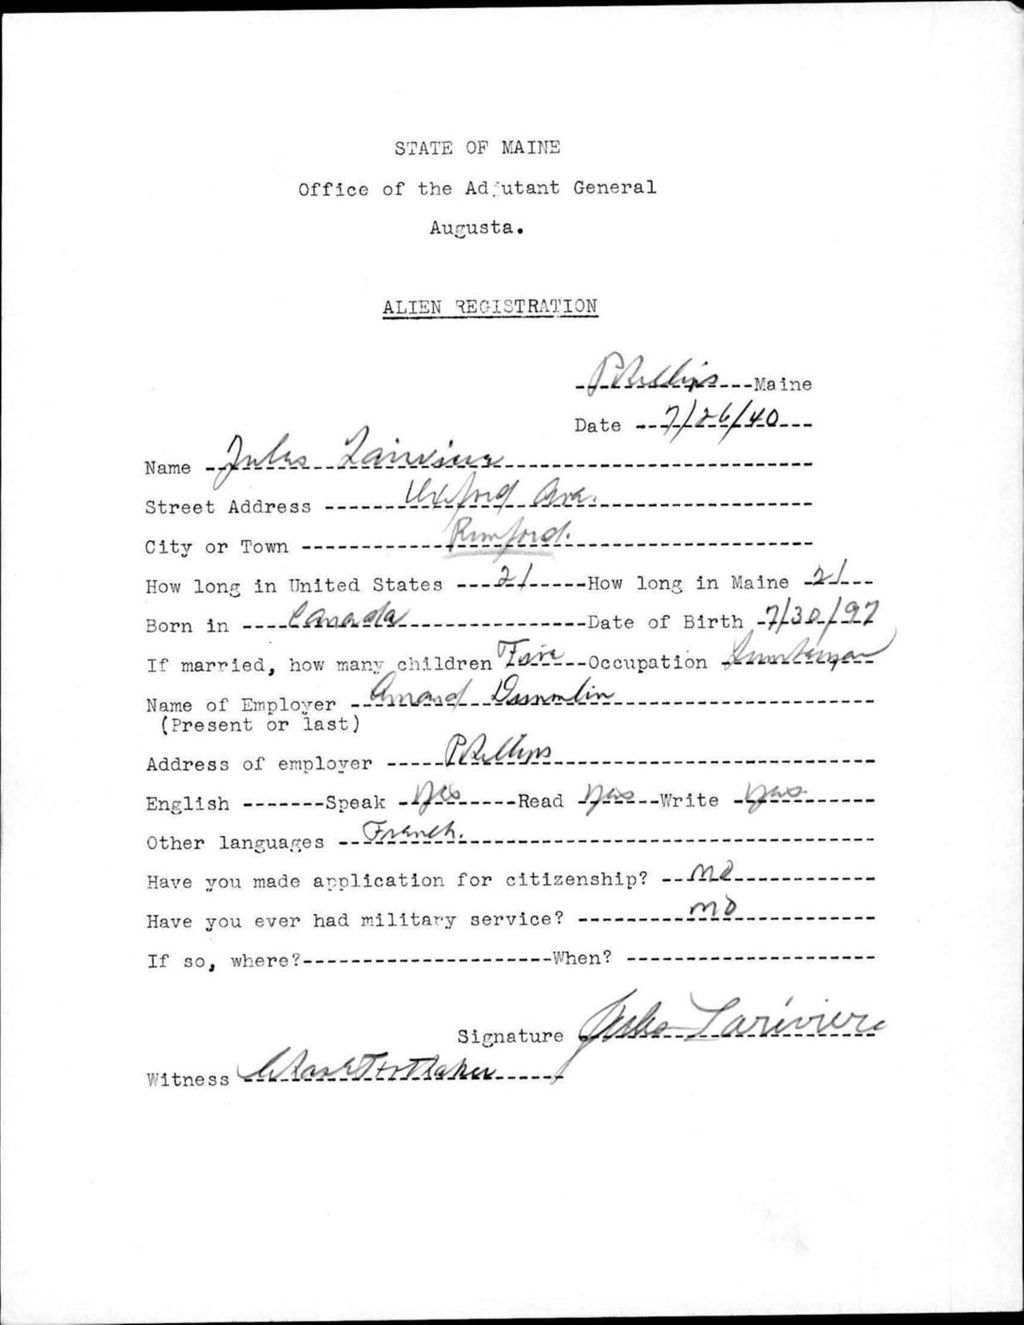 STATE OF MAINE
Office of the Adjutant General
Augusta.
ALIEN REGISTRATION
Phillips Maine
Date 7/26/40
Name Jules Lariviere
Street Address Oxford Ave.
City or Town Rumford.
How long in United States 21 How long in Maine 21
Born in Canada Date of Birth 7/30/97
If married, how many children Five Occupation
Name of Employer
(Present or last)
Address of employer Phillips
English Speak Yes Read Yes Write Yes
Other languages French.
Have you made application for citizenship? no
Have you ever had military service? no
If so, where? When?
Signature Jules Lariviere
Witness